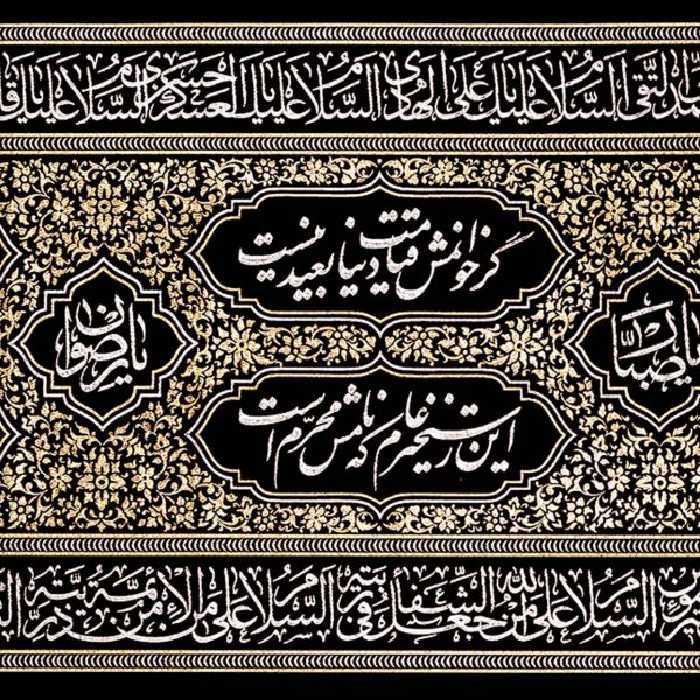 التقی السلام علیک یا علی الهادی السلام علیک یا حسن العسکری السلام علیک یا
گر خوانمش قیامت دنیا بعید نیست
یا صبار
یا رضوان
این رستخیز عام که نامش محرم است
السلام علی من جعل الله الشفاء فی تربته السلام علی من الائمة من ذریته